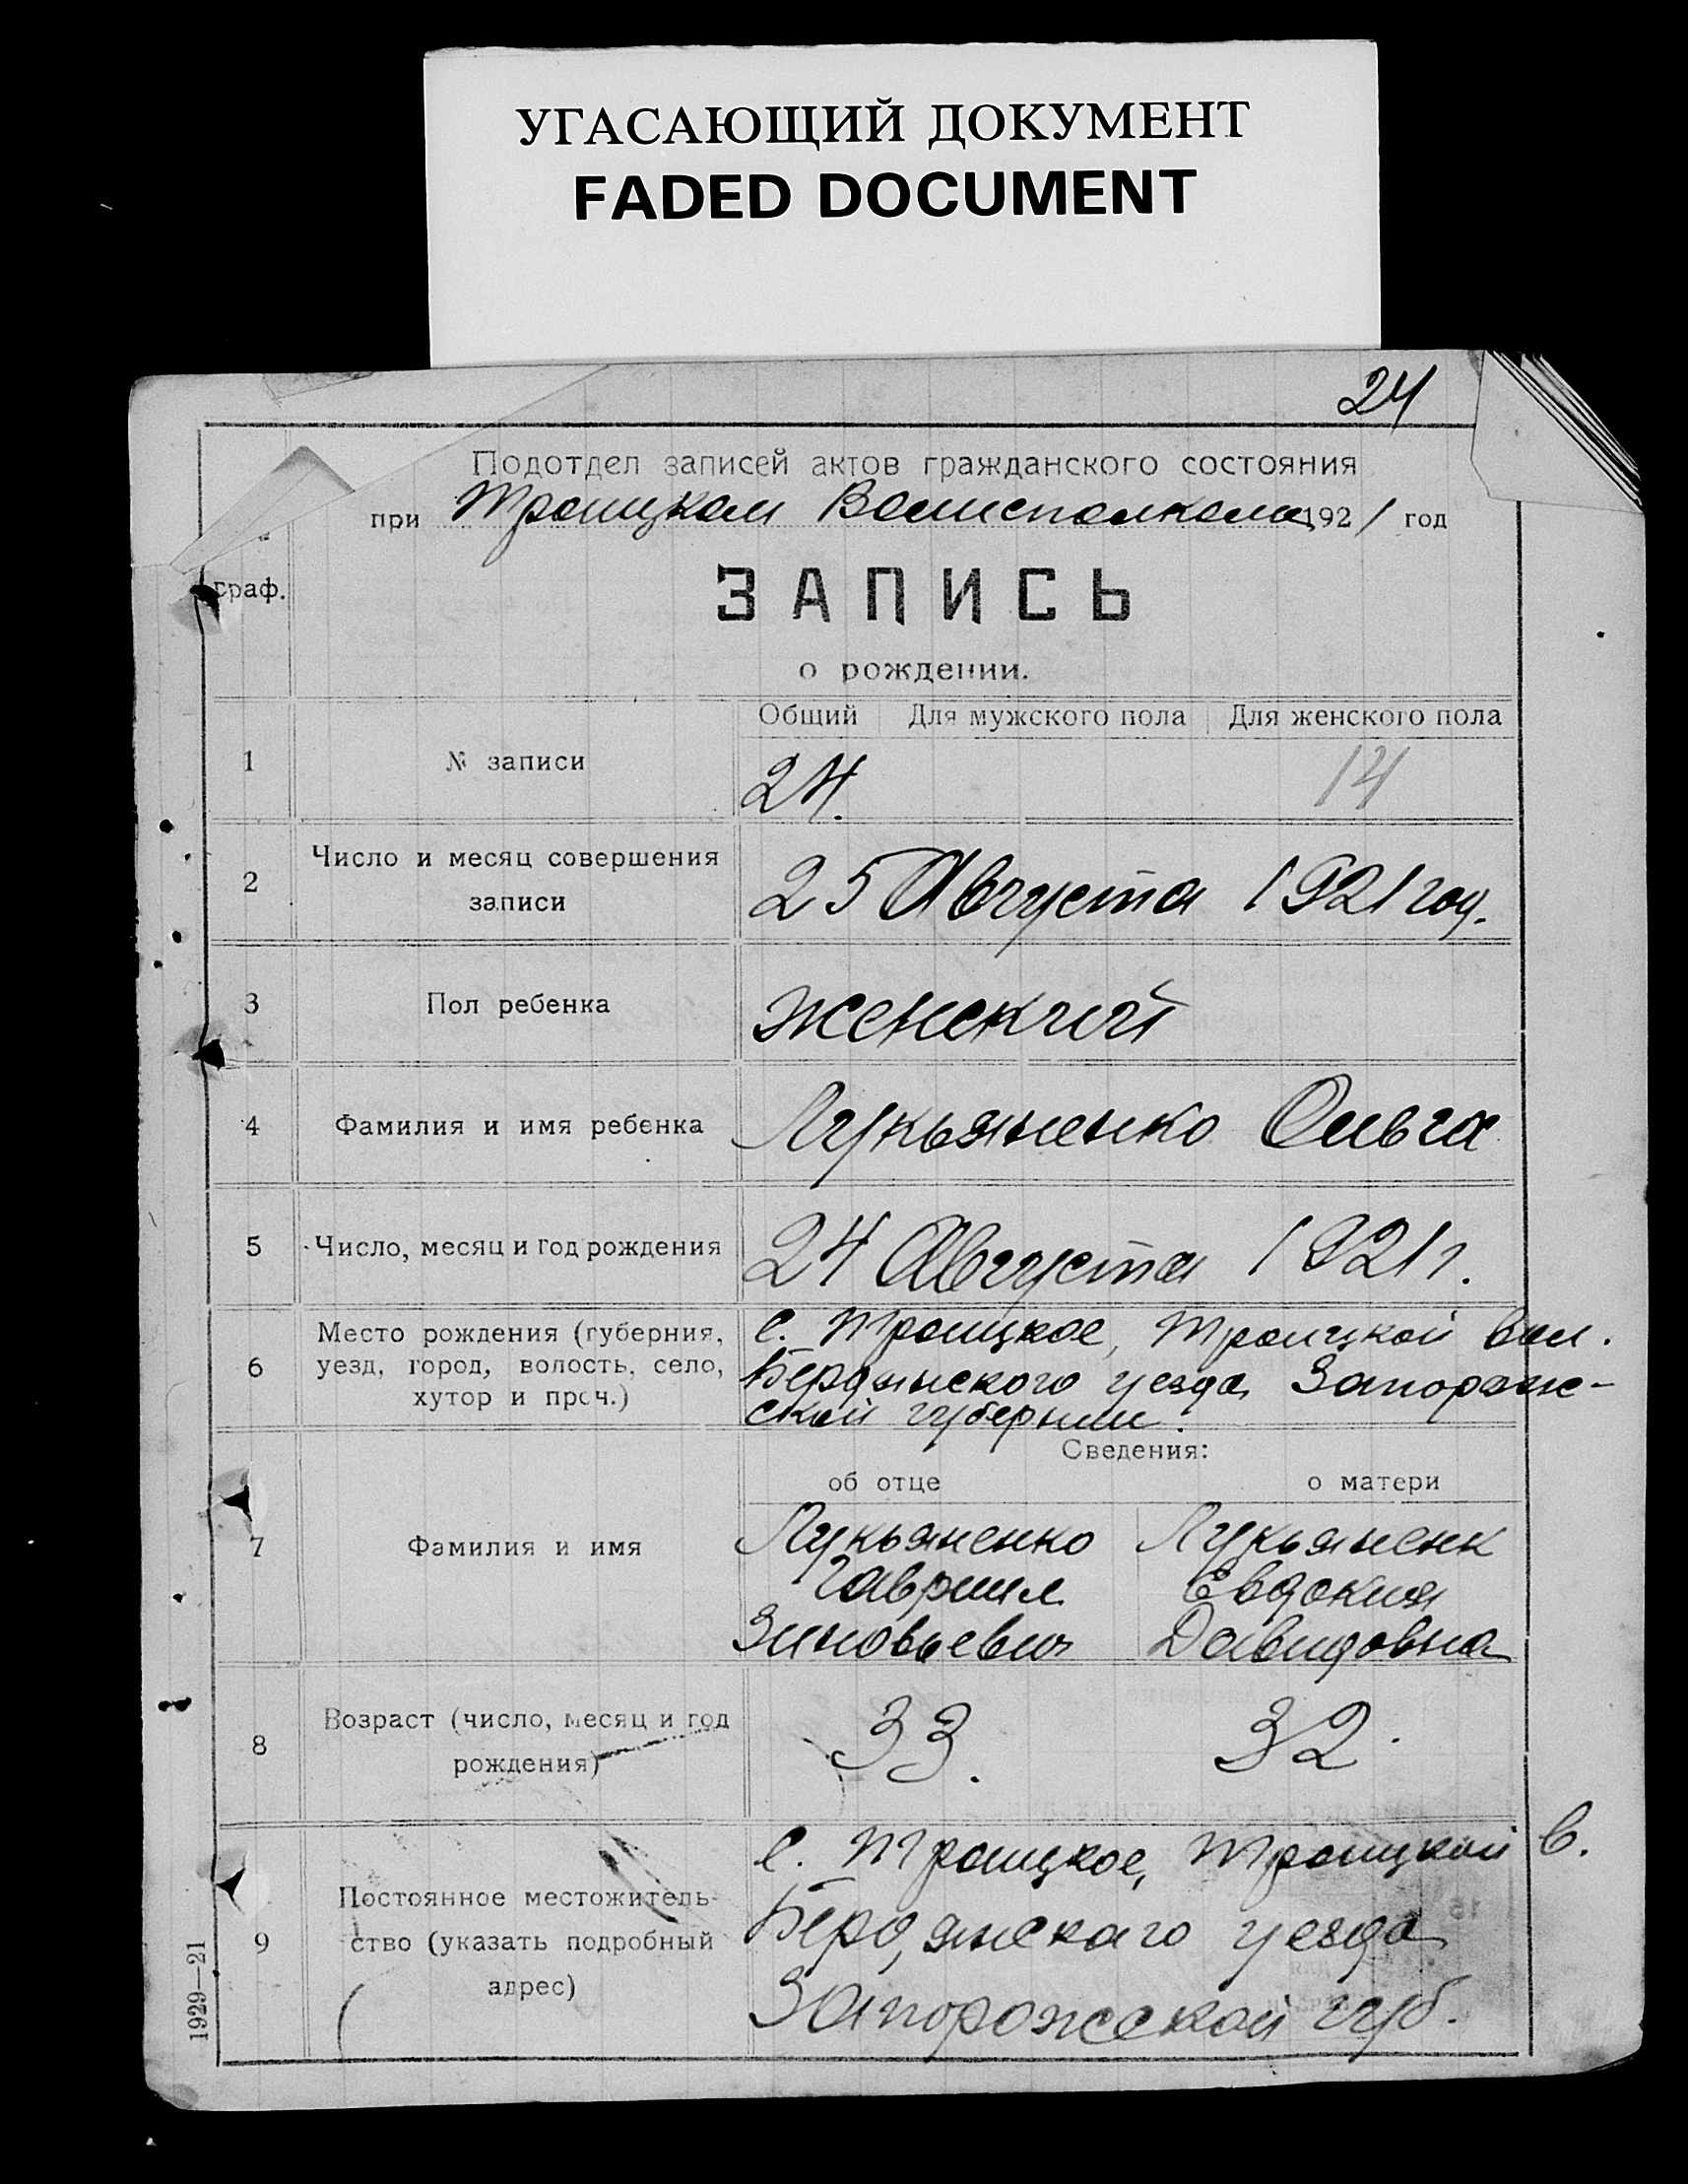 УГАСАЮЩИЙ ДОКУМЕНТ
FADED DOCUMENT
24
Подотдел записей актов гражданского состояния
при Троицком Волисполкоме 1921 год
граф.
ЗАПИСЬ
о рождении.
Общий Для мужского пола Для женского пола
1 № записи 24. 14
2 Число и месяц совершения
записи
25 Августа 1921 год.
3 Пол ребенка женский
4 Фамилия и имя ребенка Лукьяненко Ольга
5 Число, месяц и год рождения 24 Августа 1921 г.
6 Место рождения (губерния,
уезд, город, волость, село,
хутор и проч.)
с. Троицкое, Троицкой вол.
Бердянского уезда, Запорож-
ской губернии.
Сведения:
об отце о матери
7 Фамилия и имя
Лукьяненко Лукьяненк
Гавриил Евдокия
Зиновьевич Давидовна
8 Возраст (число, месяц и год
рождения)
33. 32.
9 Постоянное местожитель-
ство (указать подробный
адрес)
с. Троицкое, Троицкой в.
Бердянскаго уезда
Запорожской губ.
1929—21